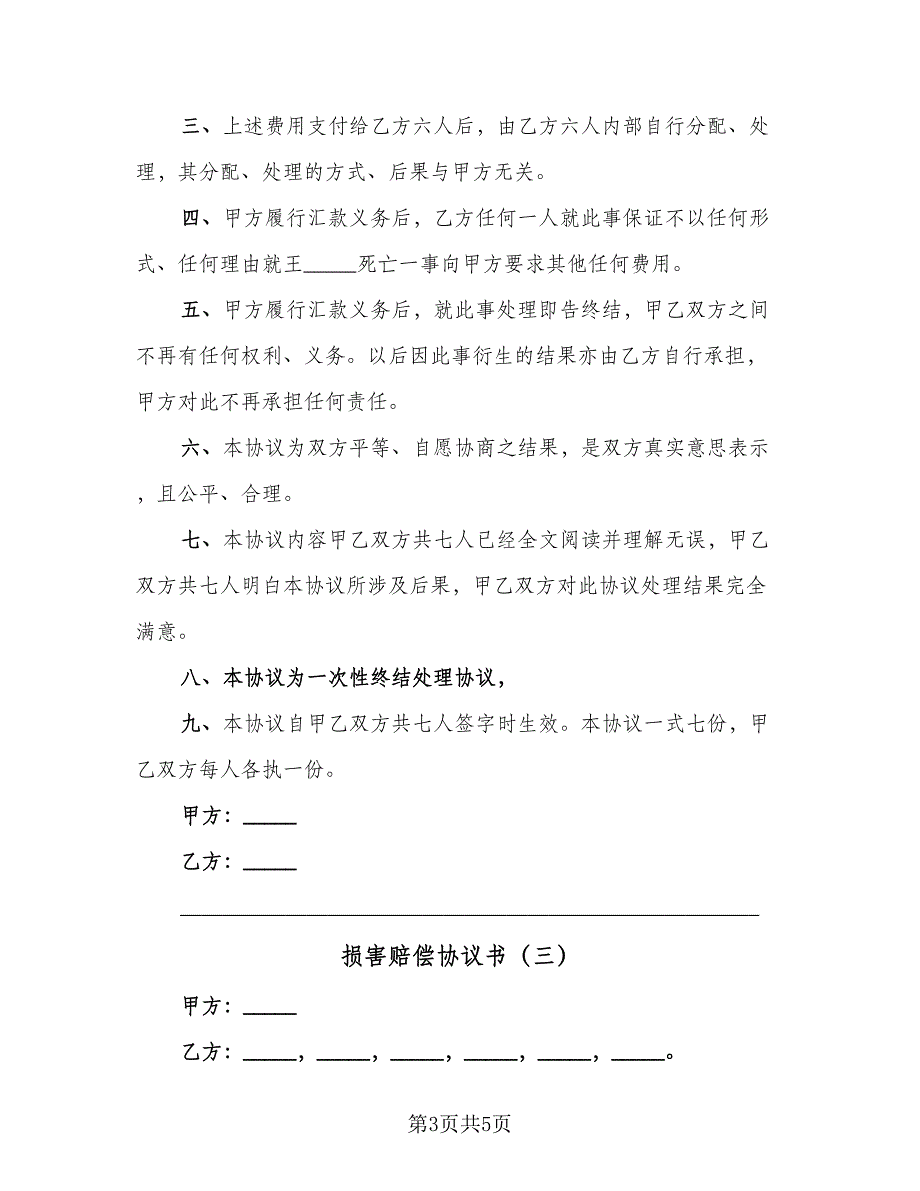 三、上述费用支付给乙方六人后，由乙方六人内部自行分配、处
理，其分配、处理的方式、后果与甲方无关。
四、甲方履行汇款义务后，乙方任何一人就此事保证不以任何形
式、任何理由就王_____死亡一事向甲方要求其他任何费用。
五、甲方履行汇款义务后，就此事处理即告终结，甲乙双方之间
不再有任何权利、义务。以后因此事衍生的结果亦由乙方自行承担，
甲方对此不再承担任何责任。
六、本协议为双方平等、自愿协商之结果，是双方真实意思表示
，且公平、合理。
七、本协议内容甲乙双方共七人已经全文阅读并理解无误，甲乙
双方共七人明白本协议所涉及后果，甲乙双方对此协议处理结果完全
满意。
八、本协议为一次性终结处理协议，
九、本协议自甲乙双方共七人签字时生效。本协议一式七份，甲
乙双方每人各执一份。
甲方：_____
乙方：_____
损害赔偿协议书（三）
甲方：_____
乙方：_____，_____，_____，_____，_____，_____。
第3页共5页